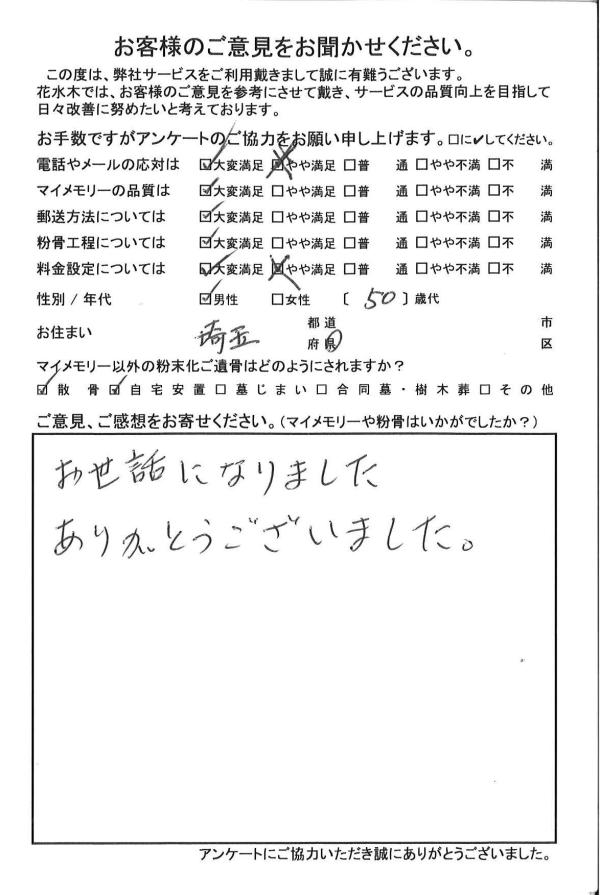 お客様のご意見をお聞かせください。
この度は、弊社サービスをご利用戴きまして誠に有難うございます。
花水木では、お客様のご意見を参考にさせて戴き、サービスの品質向上を目指して
日々改善に努めたいと考えております。
お手数ですがアンケートのご協力をお願い申し上げます。□に✔してください。
電話やメールの応対は ☑大変満足 ☑やや満足 □普 通 □やや不満 □不 満
マイメモリーの品質は ☑大変満足 □やや満足 □普 通 □やや不満 □不 満
郵送方法については ☑大変満足 □やや満足 □普 通 □やや不満 □不 満
粉骨工程については ☑大変満足 □やや満足 □普 通 □やや不満 □不 満
料金設定については ☑大変満足 ☑やや満足 □普 通 □やや不満 □不 満
性別 / 年代 ☑男性 □女性 〔 50 〕歳代
お住まい 埼玉 都 道 府 県 市 区
マイメモリー以外の粉末化ご遺骨はどのようにされますか？
☑散 骨 ☑自宅安置 □墓じまい □合同墓・樹木葬 □その他
ご意見、ご感想をお寄せください。(マイメモリーや粉骨はいかがでしたか？)
お世話になりました
ありがとうございました。
アンケートにご協力いただき誠にありがとうございました。